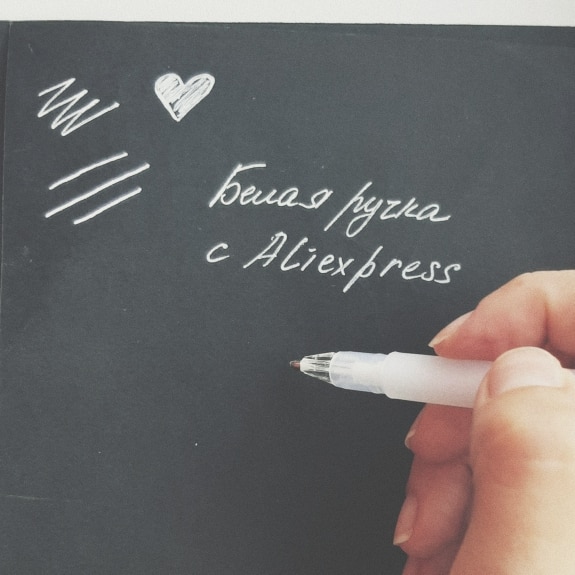 Белая ручка
с Aliexpress